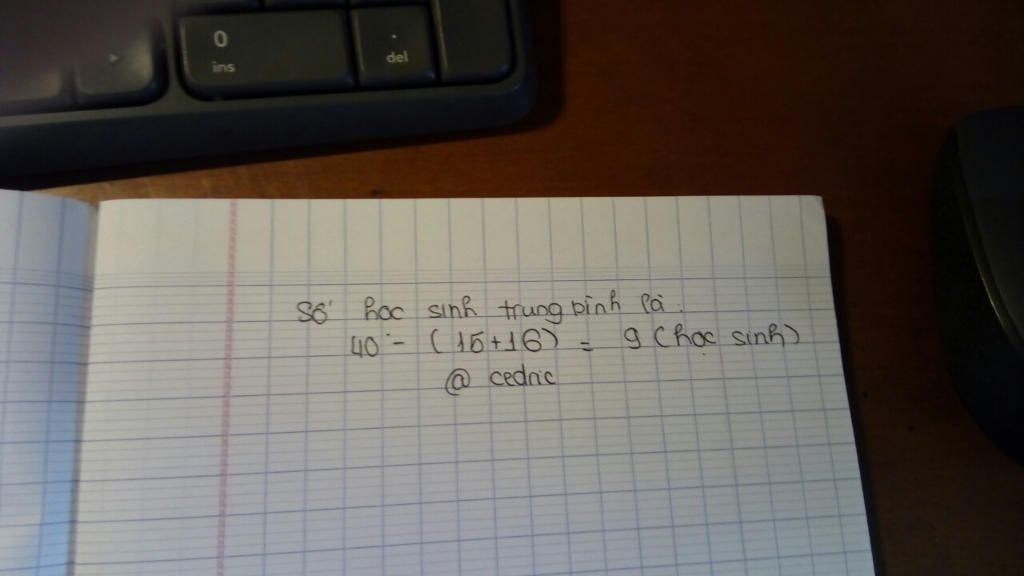 0
ins
.
del
Số học sinh trung bình là:
40 - (15+16) = 9 (học sinh)
@ cedric